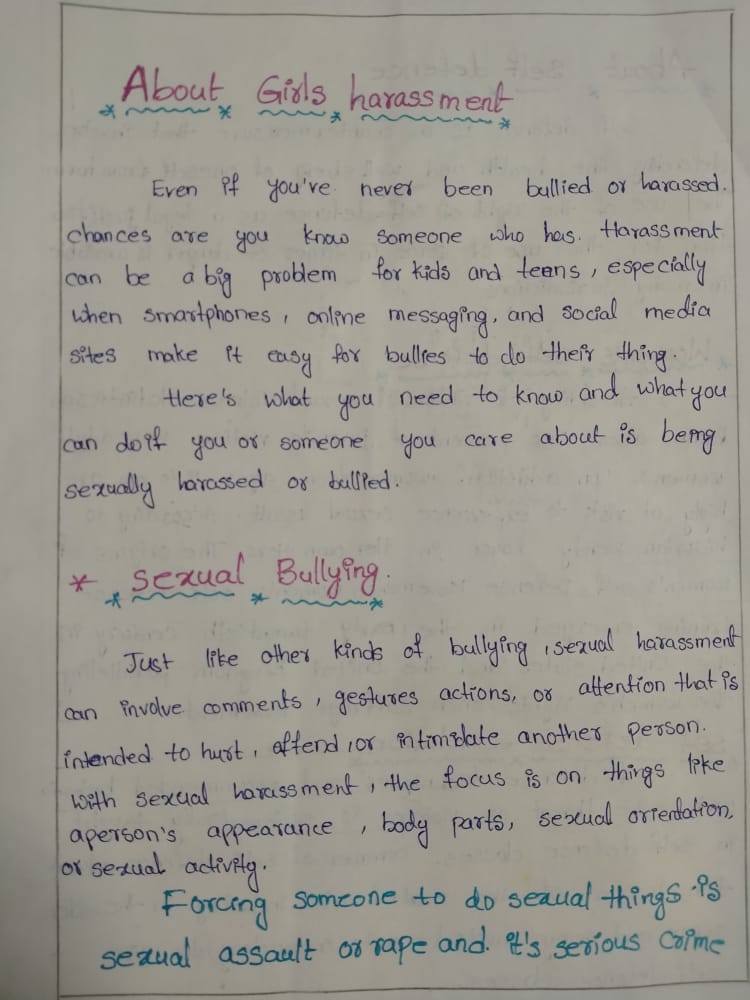 About Girls harassment
Even if you've never been bullied or harassed.
chances are you know someone who has. Harassment
can be a big problem for kids and teens, especially
when smartphones, online messaging, and social media
sites make it easy for bullies to do their thing.
Here's what you need to know and what you
can do if you or someone you care about is being.
sexually harassed or bullied.
* Sexual Bullying.
Just like other kinds of bullying, sexual harassment
can involve comments, gestures actions, or attention that is
intended to hurt, offend, or intimidate another person.
with sexual harassment, the focus is on things like
aperson's appearance, body parts, sexual orientation,
or sexual activity.
Forcing someone to do sexual things is
sexual assault or rape and. it's serious crime